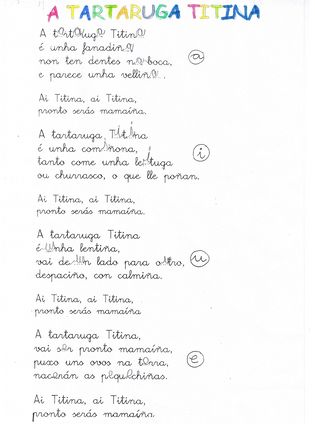 A TARTARUGA TITINA
A tartaruga Titina
é unha fanadiña
non ten dentes na boca,
e parece unha velliña.
a
Ai Titina, ai Titina,
pronto serás mamaíña.
A tartaruga Titina
é unha comiñona,
tanto come unha leituga
ou churrasco, o que lle poñan.
i
Ai Titina, ai Titina,
pronto serás mamaíña.
A tartaruga Titina
é unha lentiña,
vai de un lado para outro,
despaciño, con calmiña.
u
Ai Titina, ai Titina,
pronto serás mamaíña
A tartaruga Titina,
vai ser pronto mamaíña,
puxo uns ovos na terra,
nacerán as pequechiñas.
e
Ai Titina, ai Titina,
pronto serás mamaíña.